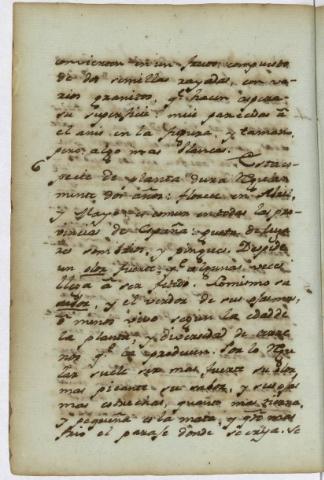 convierten en un fruto, compuesto
de dos semillas rayadas, con va-
rios granitos, qe. hacen aspera
su superficie: mui parecidas a
el anis en la figura, y taman.
pero algo mas blancas.
6 Esta es-
pecie de planta dura regular
mente dos años: florece en Abril,
y Mayo: es comun en todas las pro-
vincias de España: gusta de luga-
res sombrios, y pingues. Despide
un olor fuerte, qe. algunas veces
llega a ser fetido. Lo mismo su
y el verdor de sus plumas,
o menos vivo segun la edad de
la planta, y diversidad de terre-
nos qe. la producen. Por lo regu-
lar suele ser mas fuerte su olor,
mas picante su sabor, y sus ojas
mas estrechas, quanto mas
y pequeña es la mata, y qto. mas
frio el paraje donde se cria. Se